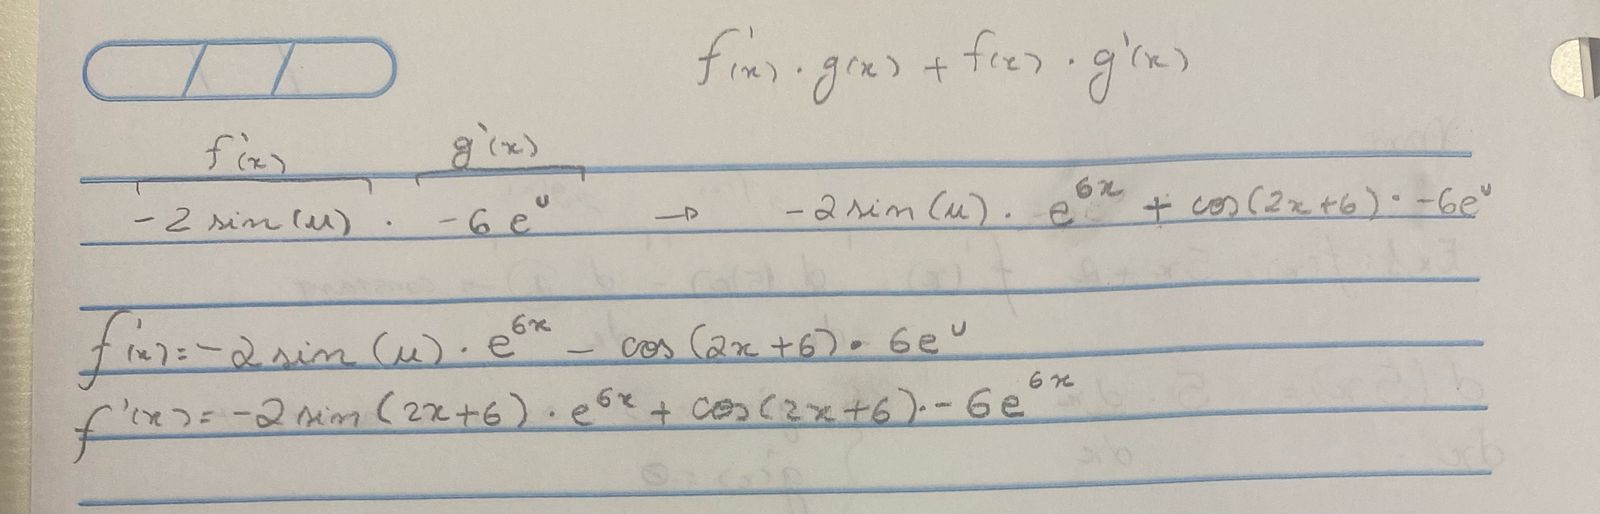 f'(x) · g(x) + f(x) · g'(x)
f'(x) g'(x)
-2 sin(u) · -6e^u → -2 sin(u) · e^6x + cos(2x+6) · -6e^u
f'(x) = -2 sin(u) · e^6x - cos(2x+6) · 6e^u
f'(x) = -2 sin(2x+6) · e^6x + cos(2x+6) · -6e^6x